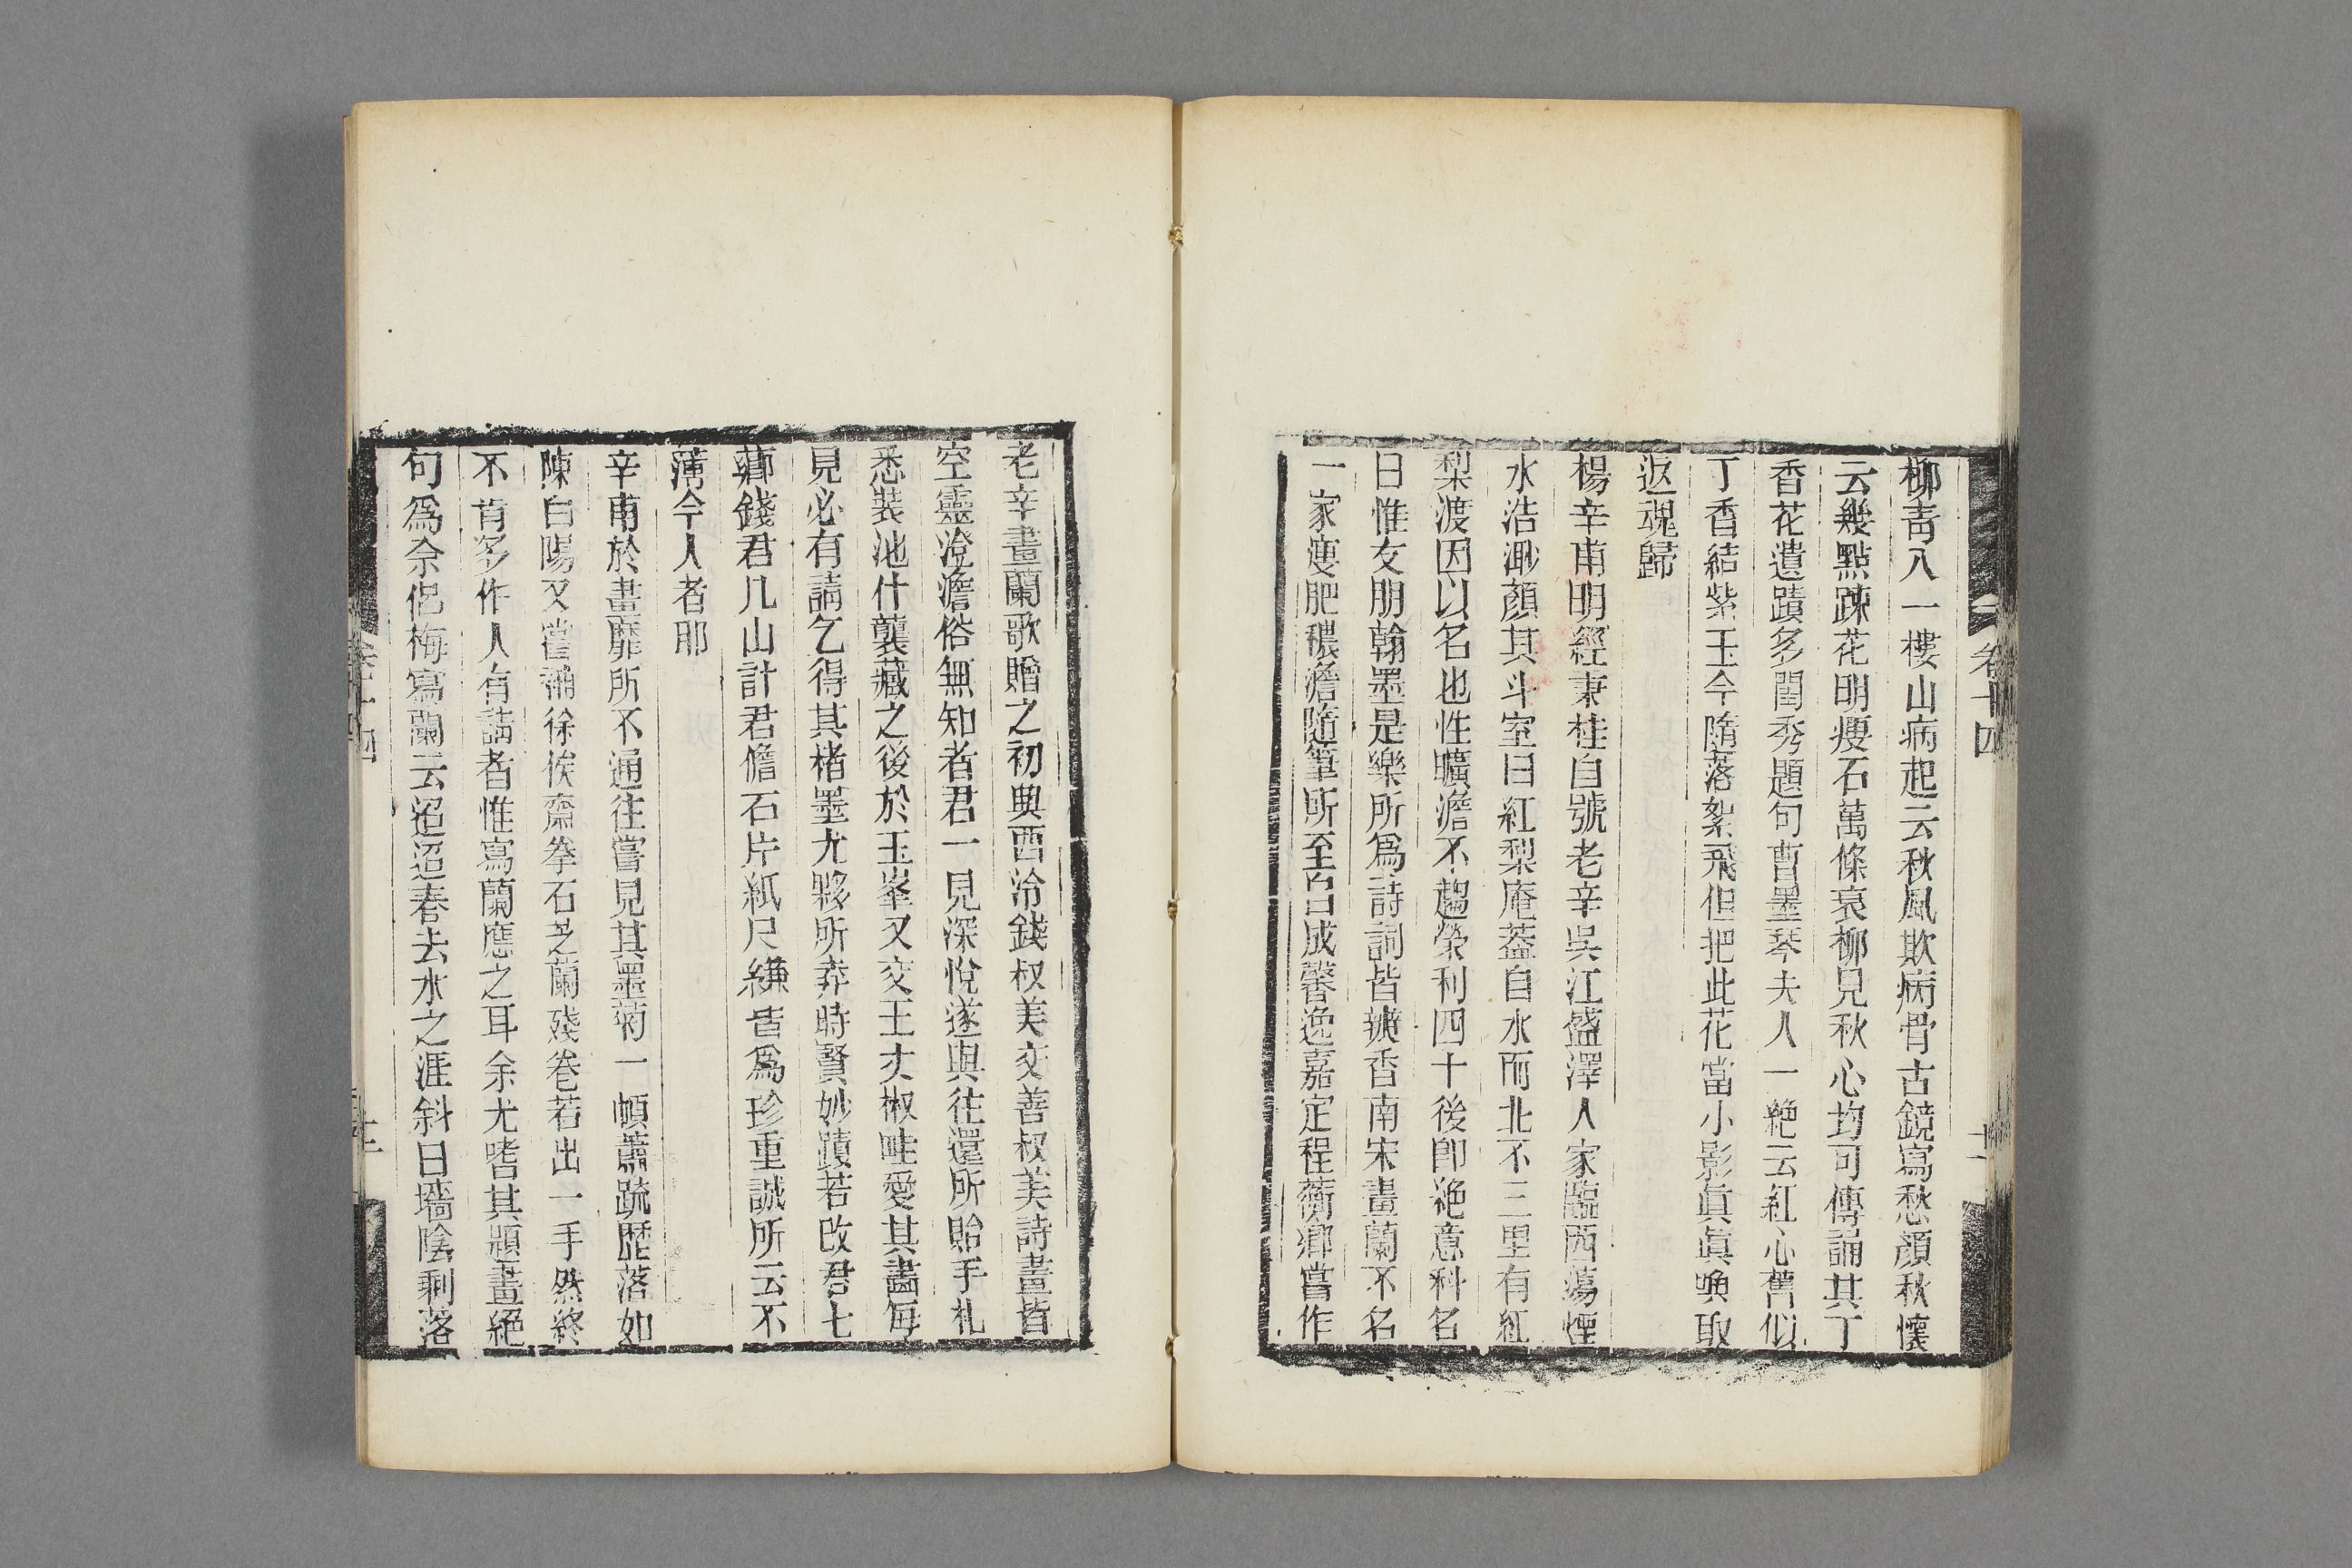 柳靑入一樓山病起云秋風欺病骨古鏡寫愁顏秋懷
云幾點踈花明瘦石萬條衰柳見秋心均可傳誦其丁
香花遺蹟多閨秀題句曹墨琴夫人一絶云紅心舊似
丁香結紫玉今隨落絮飛但把此花當小影眞眞喚取
返魂歸
楊辛甫明經秉桂自號老辛吳江盛澤人家臨西蕩煙
水浩渺顏其斗室曰紅梨庵葢自水而北不三里有紅
梨渡因以名也性曠澹不趨榮利四十後卽絶意科名
日惟友朋翰墨是樂所爲詩詞皆瓣香南宋畫蘭不名
一家瘦肥穠澹隨筆所至自成馨逸嘉定程蘅鄉嘗作
卷十四
十一
老辛畫蘭歌贈之初與西泠錢叔美交善叔美詩畫皆
空靈澄澹俗無知者君一見深悅遂與往還所貽手札
悉裝池什襲藏之後於玉峯又交王丈椒畦愛其畫每
見必有請乞得其楮墨尤夥所弆時賢妙蹟若改君七
薌錢君几山計君儋石片紙尺縑皆爲珍重誠所云不
薄今人者耶
辛甫於畫靡所不通往嘗見其墨菊一幀蕭疏歷落如
陳白陽又嘗補徐俟齋拳石芝蘭殘卷若出一手然終
不肯多作人有請者惟寫蘭應之耳余尤嗜其題畫絶
句爲余侶梅寫蘭云迢迢春去水之涯斜日墻陰剩落
卷十四